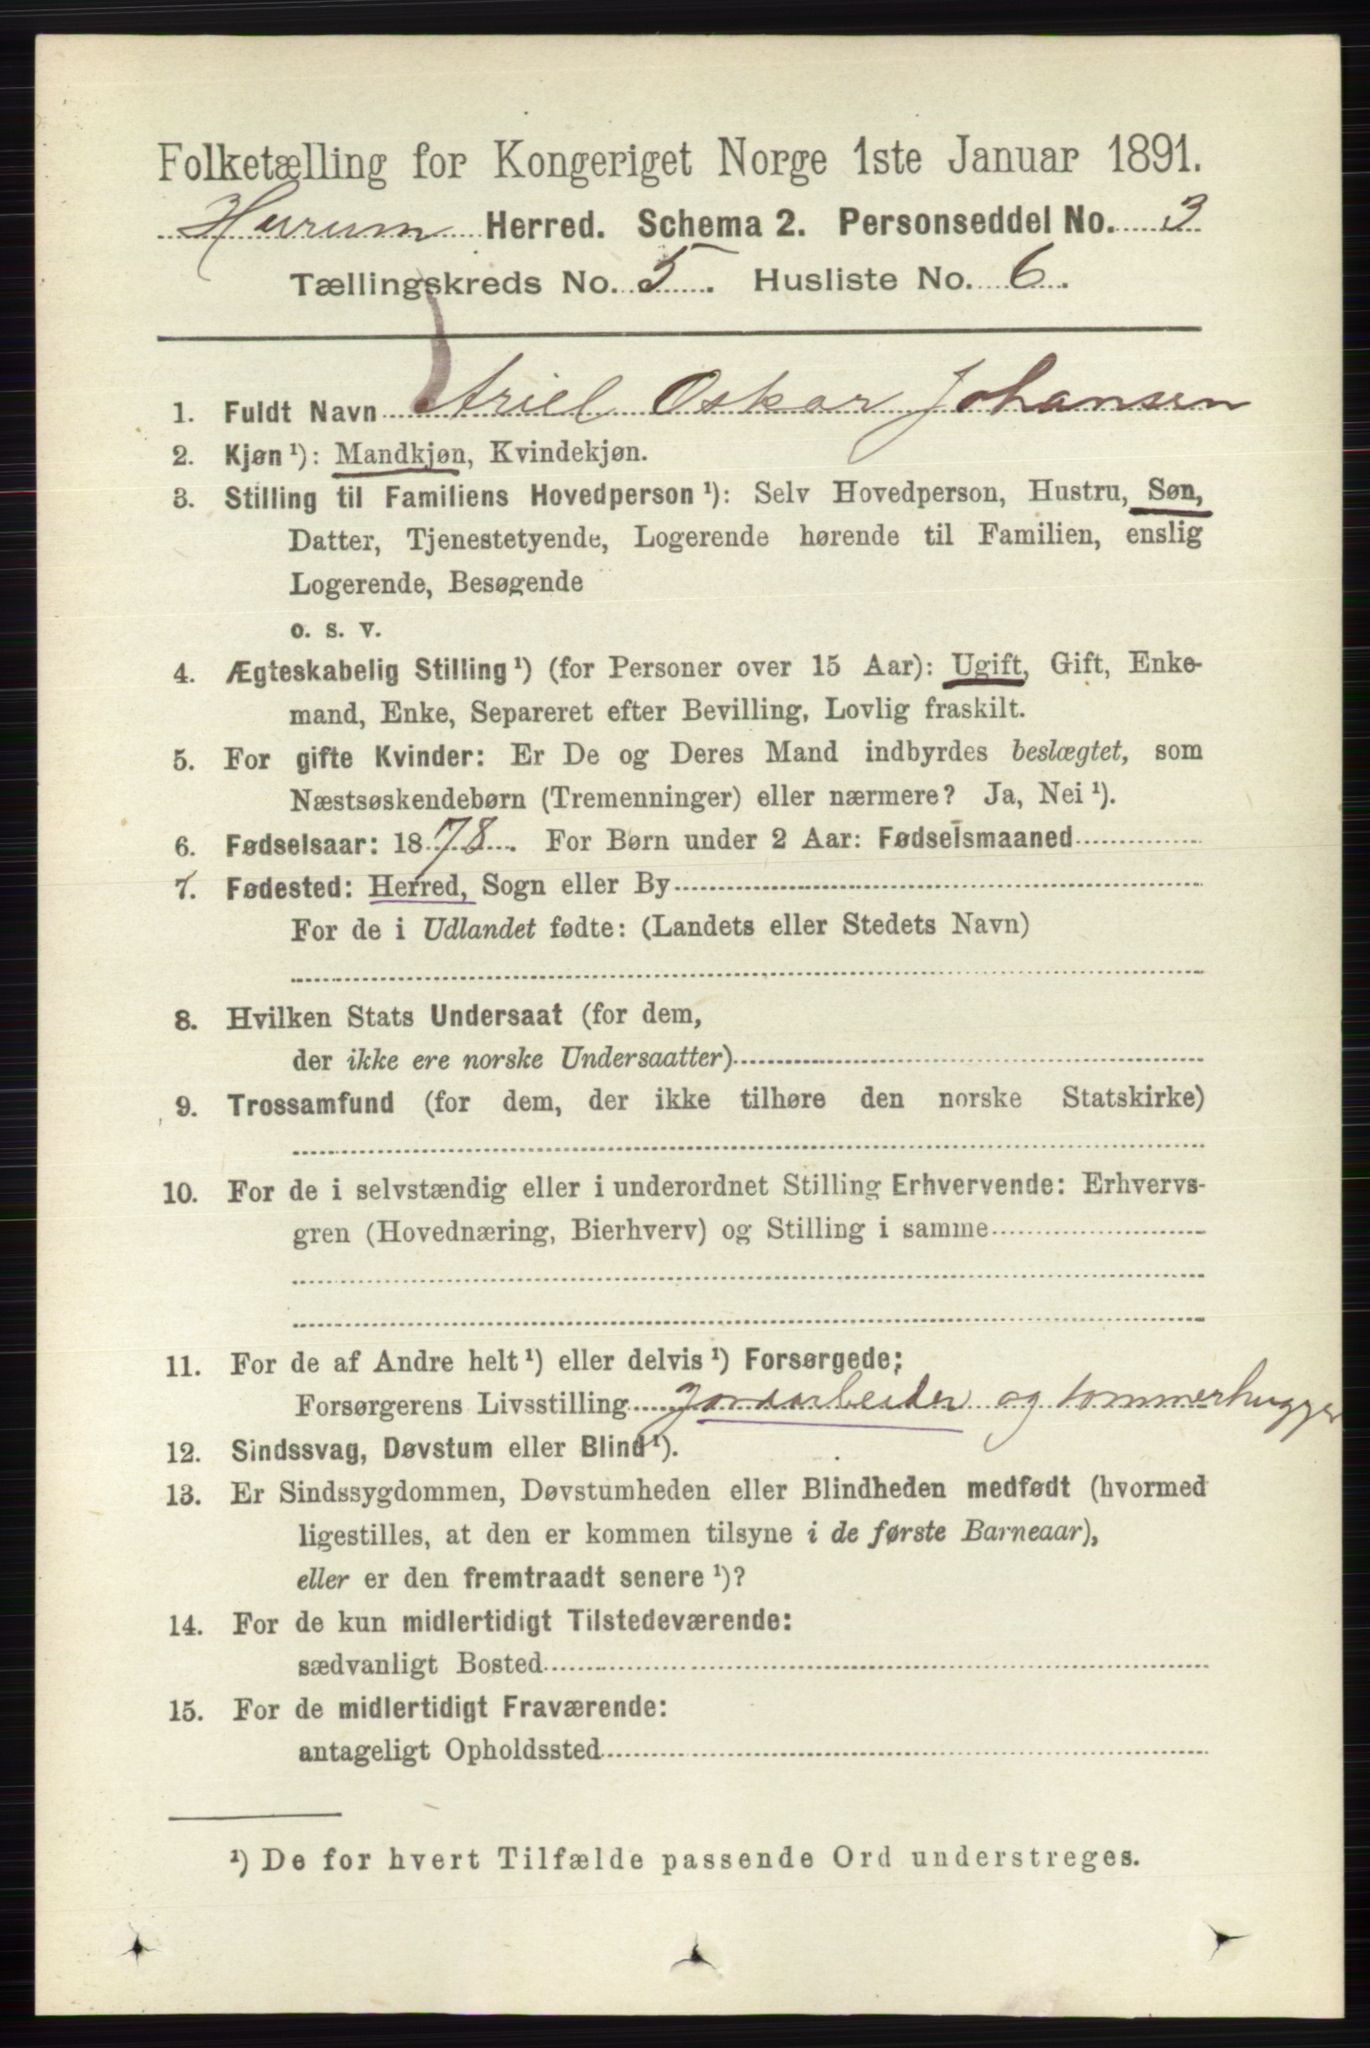 Folketælling for Kongeriget Norge 1ste Januar 1891.
Hurum Herred. Schema 2. Personseddel No. 3
Tællingskreds No. 5. Husliste No. 6.
1. Fuldt Navn Ariel Oskar Johansen
2. Kjøn ¹): Mandkjøn, Kvindekjøn.
3. Stilling til Familiens Hovedperson ¹): Selv Hovedperson, Hustru, Søn,
Datter, Tjenestetyende, Logerende hørende til Familien, enslig
Logerende, Besøgende
o. s. v.
4. Ægteskabelig Stilling ¹) (for Personer over 15 Aar): Ugift, Gift, Enke-
mand, Enke, Separeret efter Bevilling, Lovlig fraskilt.
5. For gifte Kvinder: Er De og Deres Mand indbyrdes beslægtet, som
Næstsøskendebørn (Tremenninger) eller nærmere? Ja, Nei ¹).
6. Fødselsaar: 1878. For Børn under 2 Aar: Fødselsmaaned
7. Fødested: Herred, Sogn eller By
For de i Udlandet fødte: (Landets eller Stedets Navn)
8. Hvilken Stats Undersaat (for dem,
der ikke ere norske Undersaatter)
9. Trossamfund (for dem, der ikke tilhøre den norske Statskirke)
10. For de i selvstændig eller i underordnet Stilling Erhvervende: Erhvervs-
gren (Hovednæring, Bierhverv) og Stilling i samme
11. For de af Andre helt ¹) eller delvis ¹) Forsørgede;
Forsørgerens Livsstilling Jordarbeider og tømmerhugger
12. Sindssvag, Døvstum eller Blind ¹).
13. Er Sindssygdommen, Døvstumheden eller Blindheden medfødt (hvormed
ligestilles, at den er kommen tilsyne i de første Barneaar),
eller er den fremtraadt senere ¹)?
14. For de kun midlertidigt Tilstedeværende:
sædvanligt Bosted
15. For de midlertidigt Fraværende:
antageligt Opholdssted
¹) De for hvert Tilfælde passende Ord understreges.